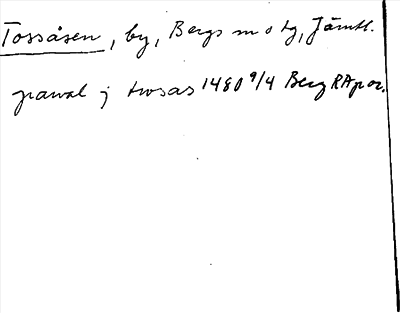 Tossåsen, by, Bergs sn o tg, Jämtl.
pawal j twsas 1480 9/4 Berg RAp or.